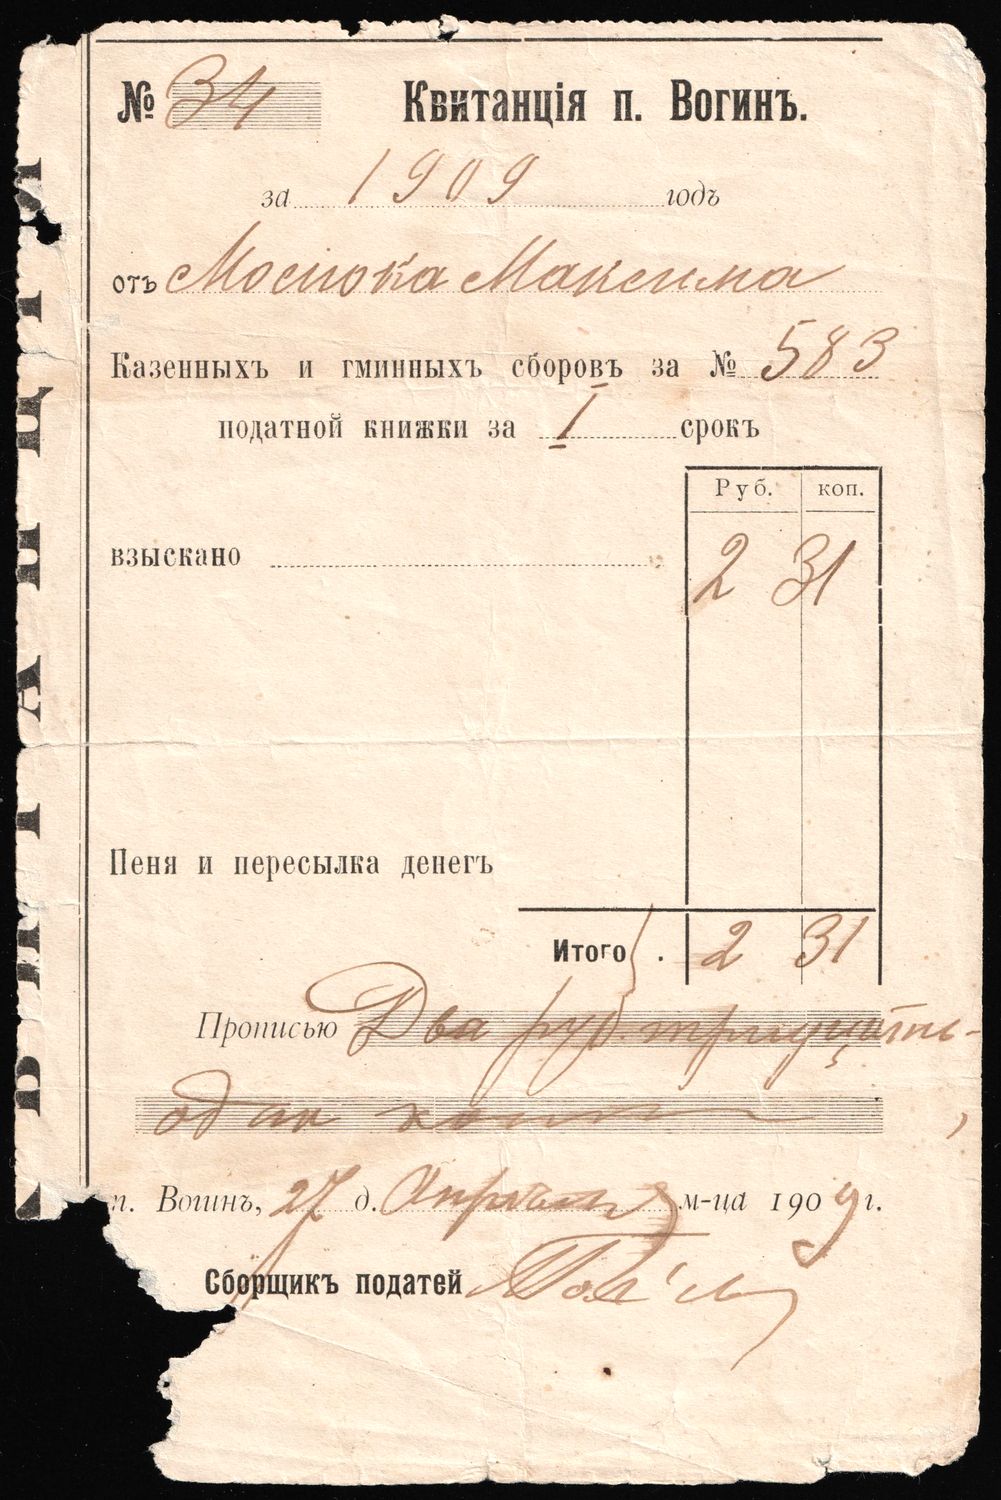 № 34 Квитанція п. Вогинъ.
за 1909 годъ
отъ Мосіюка Максима
Казенныхъ и гминныхъ сборовъ за № 583
податной книжки за I срокъ
Руб. коп.
взыскано 2 31
Пеня и пересылка денегъ
Итого . 2 31
Прописью Два руб. тридцать-
один копѣек
п. Вогинъ, 27 д. Апрѣля м-ца 1909 г.
Сборщикъ податей